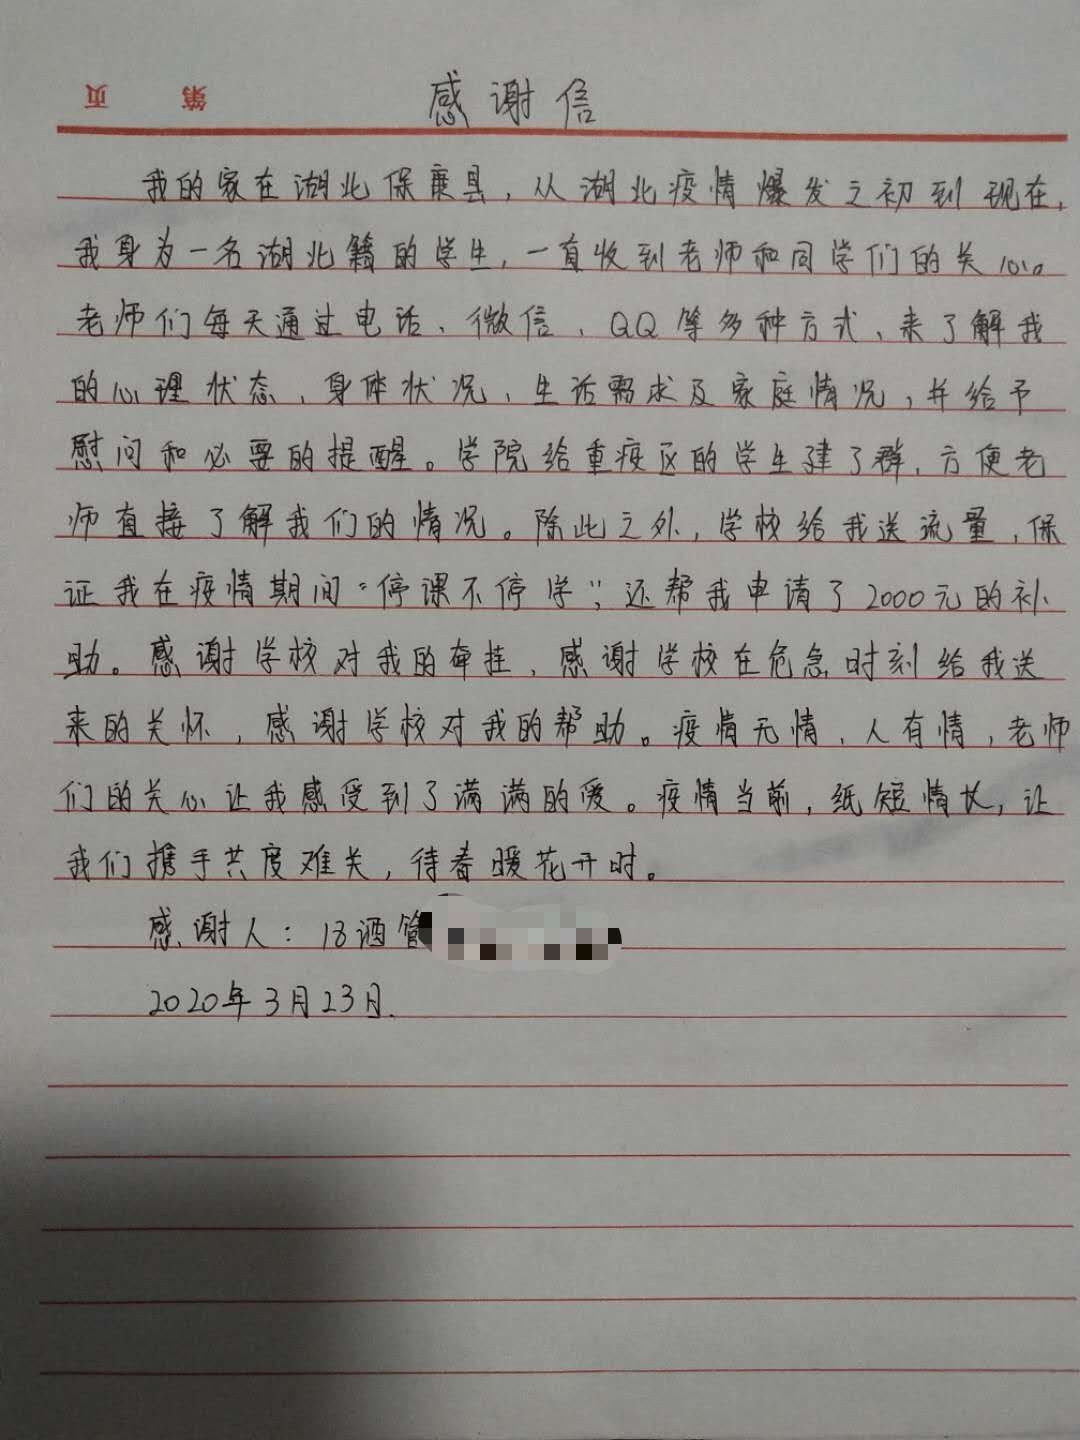 第 页
感谢信
我的家在湖北保康县，从湖北疫情爆发之初到现在，
我身为一名湖北籍的学生，一直收到老师和同学们的关心。
老师们每天通过电话、微信、QQ等多种方式、来了解我
的心理状态、身体状况、生活需求及家庭情况，并给予
慰问和必要的提醒。学院给重疫区的学生建了群，方便老
师直接了解我们的情况。除此之外，学校给我送流量，保
证我在疫情期间“停课不停学”，还帮我申请了2000元的补
助。感谢学校对我的牵挂，感谢学校在危急时刻给我送
来的关怀，感谢学校对我的帮助。疫情无情，人有情，老师
们的关心让我感受到了满满的爱。疫情当前，纸短情长，让
我们携手共度难关，待春暖花开时。
感谢人：18酒管
2020年3月23日.